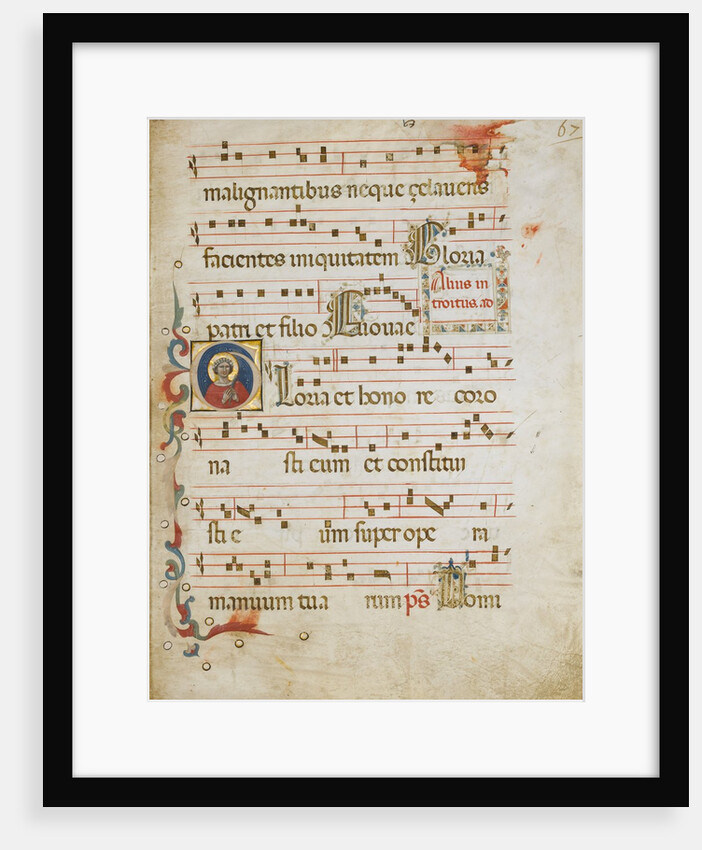 67
malignantibus neque çelaueris
facientes iniquitatem Gloria
Alius in
troitus. ad
patri et filio Euouae
Gloria et hono re coro
na sti eum et constitui
sti e um super ope ra
manuum tua rum ps Domi